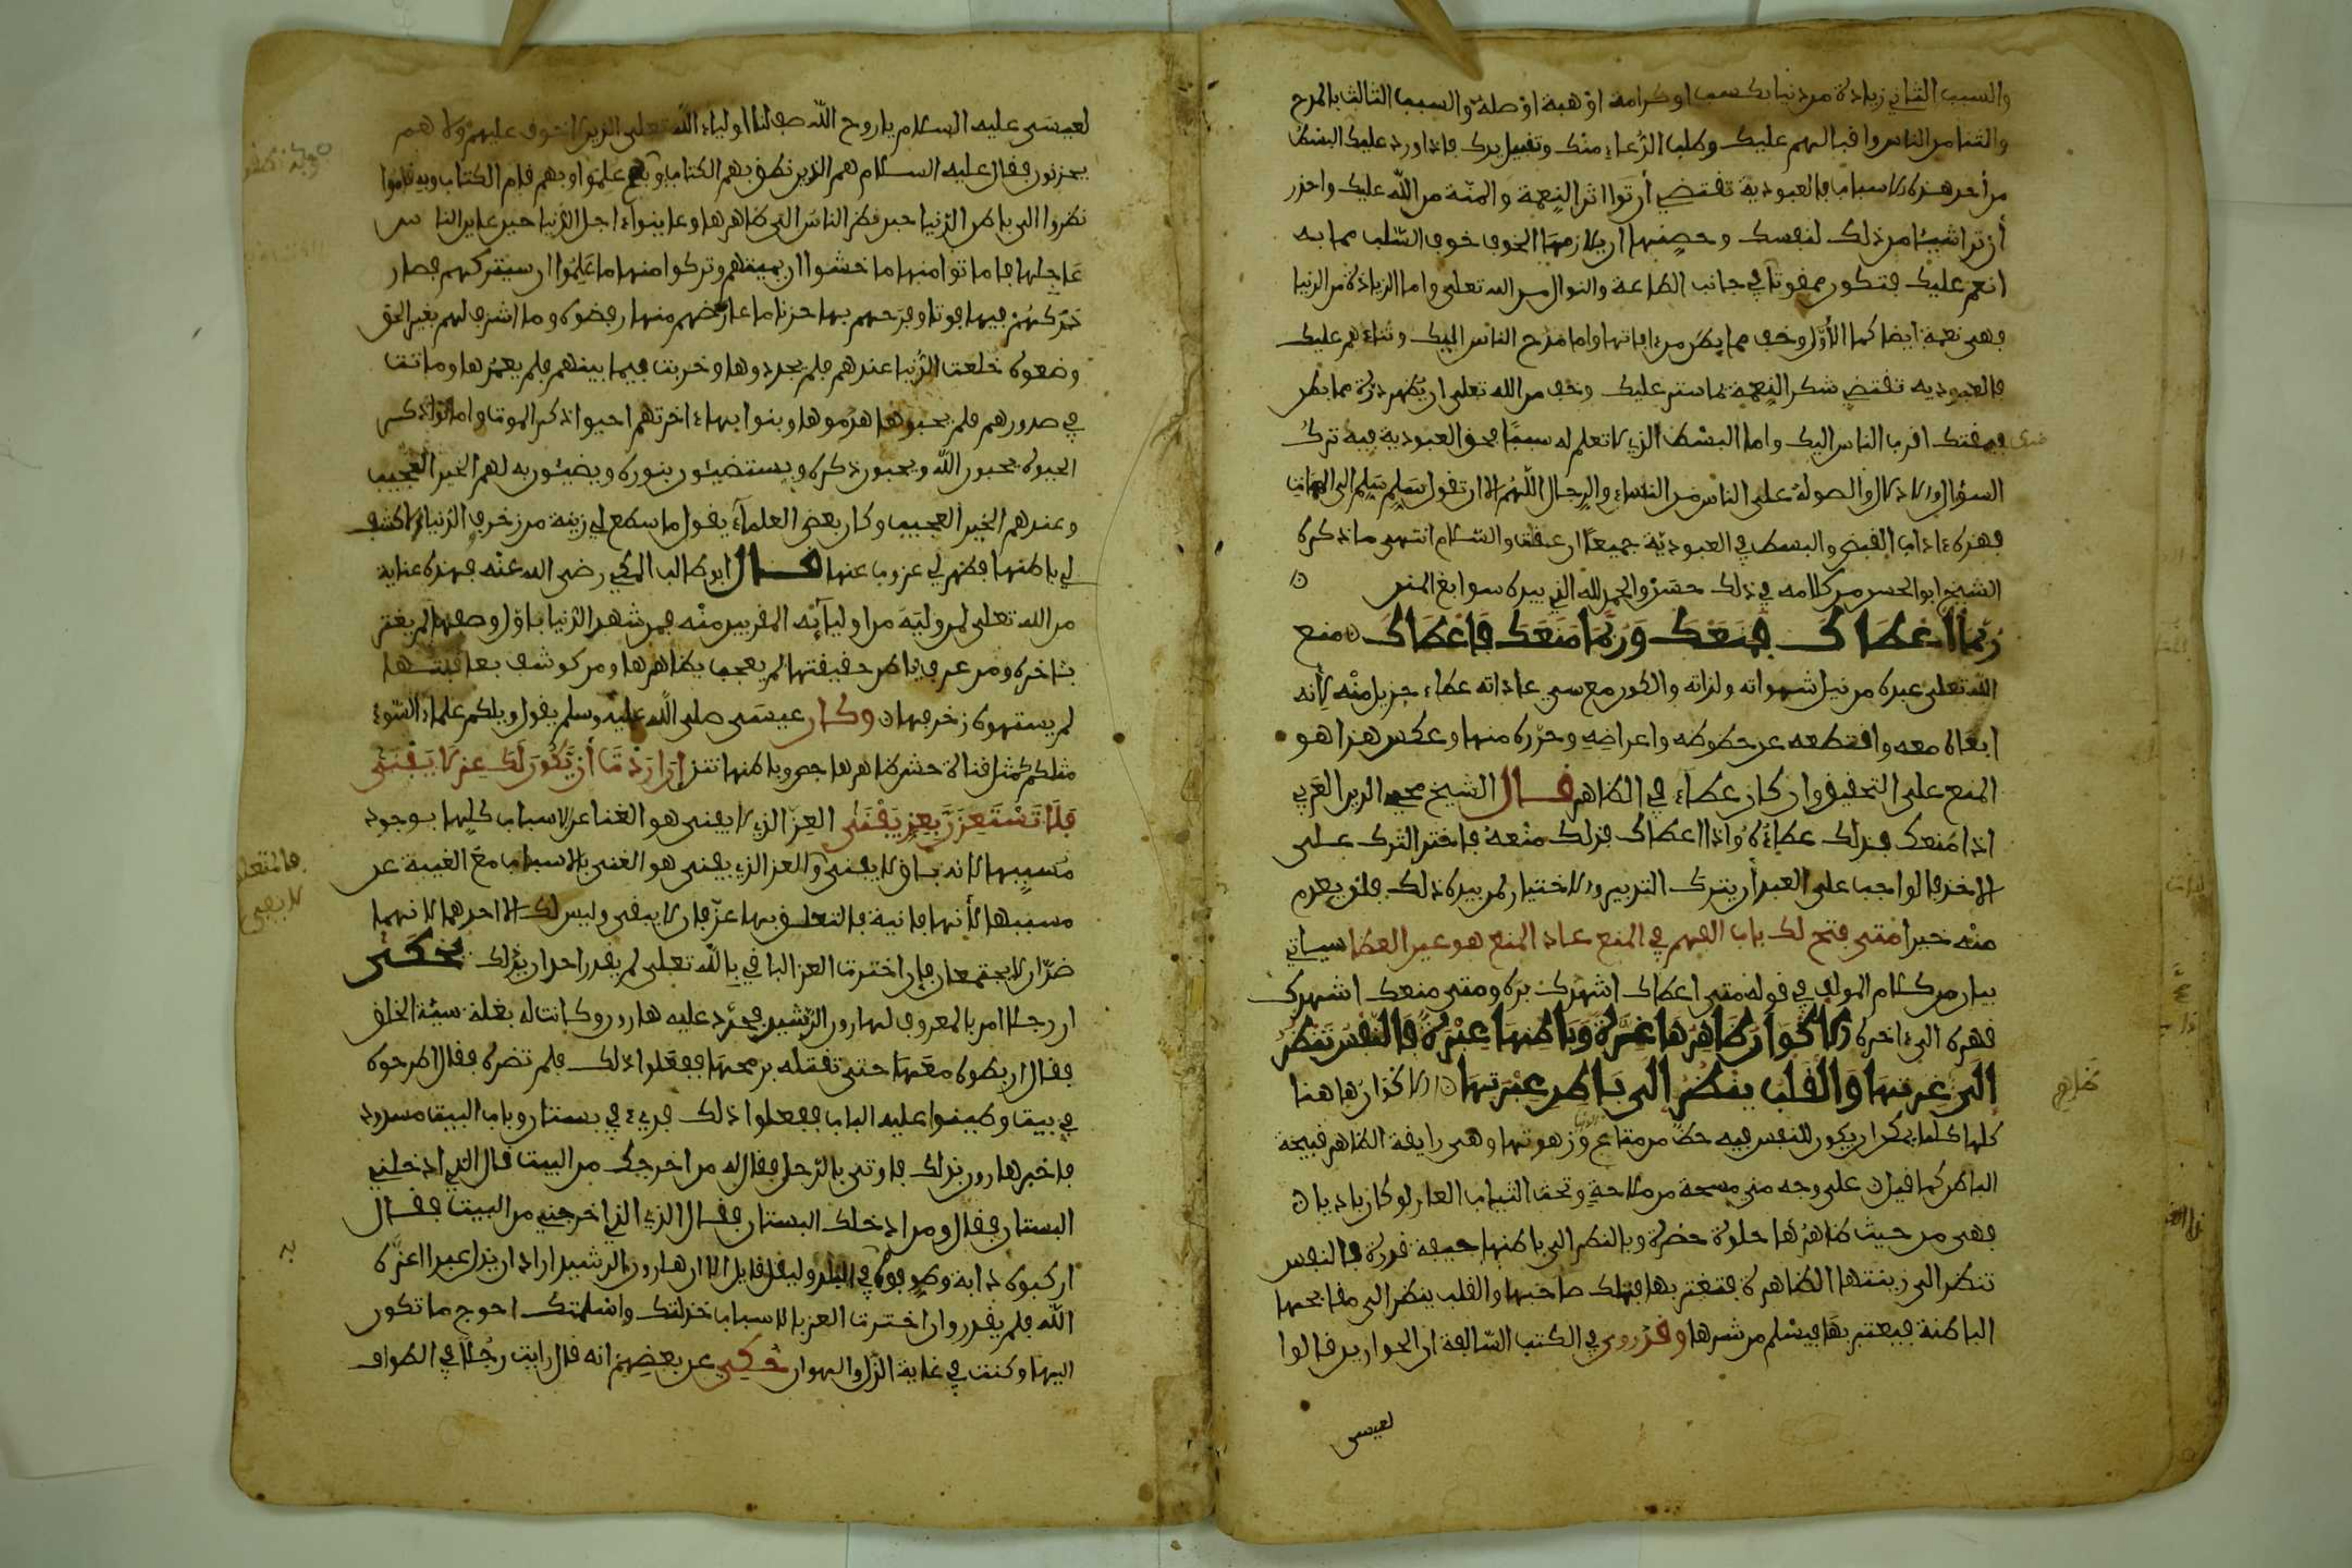 والسبب الثاني زيادة من دنيا بكسب او كرامة او هبة او صلة والسبب الثالث بالمدح
والثنا من الناس واقبالهم عليك وطلب الدعاء منك وتقبيل يدك فاذا ورد عليك البسط
من أحد هذه الاسباب فالعبودية تقتضي أن ترا اثر النعمة والمنة من الله عليك واحذر
أن ترا شيئا من ذلك لنفسك وحصنها ان يلازمها الخوف خوف السلب مما به
انعم عليك فتكون ممقوتا في جانب الطاعة والنوال من الله تعلى واما الزيادة من الدنيا
فهي نعمة ايضا كما الأول وخف مما بطن من ءافاتها واما مدح الناس اليك وثناءهم عليك
فالعبودية تقتضي شكر النعمة بما ستر عليك وخف من الله تعلى ان يظهر ذرة مما بطن
فيمقتك اقرب الناس اليك واما البسط الذي لا تعلم له سببا فحق العبودية فيه ترك
السؤال والادلال والصولة على الناس من النساء والرجال اللهم الا ان تقول سلم سلم الى الممات
فهذه ءاداب القبض والبسط في العبودية جميعا ان عقلت والسلام انتهى ما ذكره
الشيخ ابو الحسن من كلامه في ذلك حسن والحمد لله الذي بيده سوابغ المنن
ربما أعطاك فمنعك وربما منعك فأعطاك منع
الله تعلى عبده من نيل شهواته ولذاته والكون مع سيء عاداته عطاء جزيل منه لأنه
ابقاه معه واقتطعه عن حظوظه واعراضه وحرره منها وعكس هذا هو
المنع على التحقيق وان كان عطاء في الظاهر قال الشيخ محي الدين العربي
اذا منعك فذلك عطاؤه واذا اعطاك فذلك منعه فاختر الترك على
الاخذ فالواجب على العبد أن يترك التدبير والاختيار لمن بيده ذلك فلن يعدم
منه خيرا متى فتح لك باب الفهم في المنع عاد المنع هو عين العطا سياتي
بيان من كلام المولف في قوله متى اعطاك اشهدك بره ومتى منعك اشهدك
قهره الى ءاخره الاكوان ظاهرها غرة وباطنها عبرة فالنفس تنظر
الى غرتها والقلب ينظر الى باطن عبرتها الاكوان هاهنا
كلها كلما يمكن ان يكون للنفس فيه حظا من متاع الدنيا وزهوتها وهي رايقة الظاهر قبيحة
الباطن كما قيل على وجه مي مسحة من ملاحة وتحت الثياب العار لو كان باديا
فهي من حيث ظاهرها حلوة خضرة وبالنظر الى باطنها جيفة قذرة فالنفس
تنظر الى زينتها الظاهرة فتغتر بها فتهلك صاحبها والقلب ينظر الى قبايحها
الباطنة فيعتبر بها فيسلم من شرها وقد روي في الكتب السالفة ان الحواريين قالوا
لعيسى
لعيسى عليه السلام يا روح الله صف لنا اولياء الله تعلى الذين لا خوف عليهم ولا هم
يحزنون فقال عليه السلام هم الذين نطق بهم الكتاب وبه علموا وبهم قام الكتاب وبه قاموا
نظروا الى باطن الدنيا حين نظر الناس الى ظاهرها وعاينوا ءاجل الدنيا حين عاين الناس
عاجلها فاماتوا منها ما خشوا ان يميتهم وتركوا منها ما علموا ان سيتركهم فصار
دركهم فيها فوتا وفرحهم بها حزنا ما عارضهم منها رفضوه وما اشرف لهم بغير الحق
وضعوه خلقت الدنيا عندهم فلم يجددوها وخربت فيما بينهم فلم يعمروها وماتت
في صدورهم فلم يحيوها هدموها وبنوا بها ءاخرتهم احيوا ذكر الموت واماتوا ذكر
الحيوة يحبون الله ويحبون ذكره ويستضيئون بنوره ويضيئون به لهم الخبر العجيب
وعندهم الخبر العجيب وكان بعض العلماء يقول ما سطع لي زينة من زخرف الدنيا الا كشف
لي باطنها فظهر لي عزوب عنها قال ابو طالب المكي رضي الله عنه فهذه عناية
من الله تعلى لمن وليه من اوليائه المقربين منه فمن شهد الدنيا باول وصفها لم يغتر
بئاخره ومن عرف باطن حقيقتها لم يعجب بظاهرها ومن كوشف بعاقبتها
لم يستهوه زخرفها وكان عيسى صلى الله عليه وسلم يقول ويلكم علماء السوء
مثلكم كمثل قناة حش ظاهرها جص وباطنها نتن ان اردت أن يكون لك عز لا يفنى
فلا تستعزن بعز يفنى العز الذي لا يفنى هو الغنا عن الاسباب كلها بوجود
مسببها لانه باق لا يفنى والعز الذي يفنى هو الغنى بالاسباب مع الغيبة عن
مسببها لأنها فانية فالتعلق بها عز فان لا يبقى وليس لك الا احدهما لانهما
ضدان لا يجتمعان فإن اخترت العز الباقي بالله تعلى لم يقدر احد ان يذلك يحكى
ان رجلا امر بالمعروف لهارون الرشيد فحرد عليه هارون وكانت له بغلة سيئة الخلق
فقال اربطوه معها حتى تقتله برمحها ففعلوا ذلك فلم تضره فقال اطرحوه
في بيت وطينوا عليه الباب ففعلوا ذلك فرءي في بستان وباب البيت مسدود
فاخبر هارون بذلك فاوتي بالرجل فقال له من اخرجك من البيت قال الذي ادخلني
البستان فقال ومن ادخلك البستان فقال الذي اخرجني من البيت فقال
اركبوه دابة وطوفوه في البلد وليقل قايل الا ان هارون الرشيد اراد ان يذل عبدا اعزه
الله فلم يقدر وان اخترت العز بالاسباب خذلتك واسلمتك احوج ما تكون
اليها وكنت في غاية الذل والهوان حكي عن بعضهم انه قال رايت رجلا في الطواف
فالمتعلق
لا يبقى